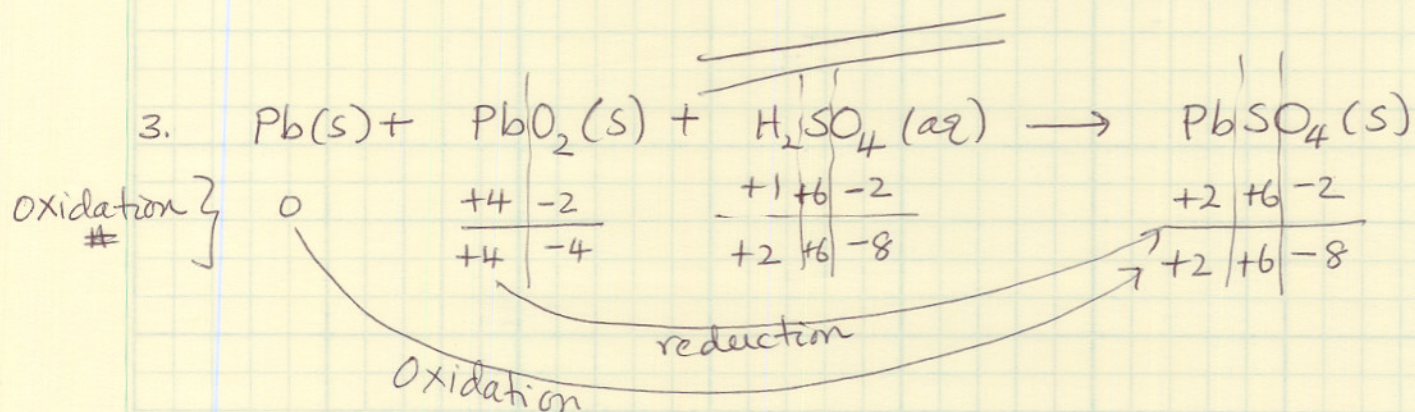 3. Pb(s) + PbO₂(s) + H₂SO₄(aq) → PbSO₄(s)
oxidation } 0 +4 | -2 +1 | +6 | -2 +2 | +6 | -2
# +4 | -4 +2 | +6 | -8 +2 | +6 | -8
reduction
Oxidation